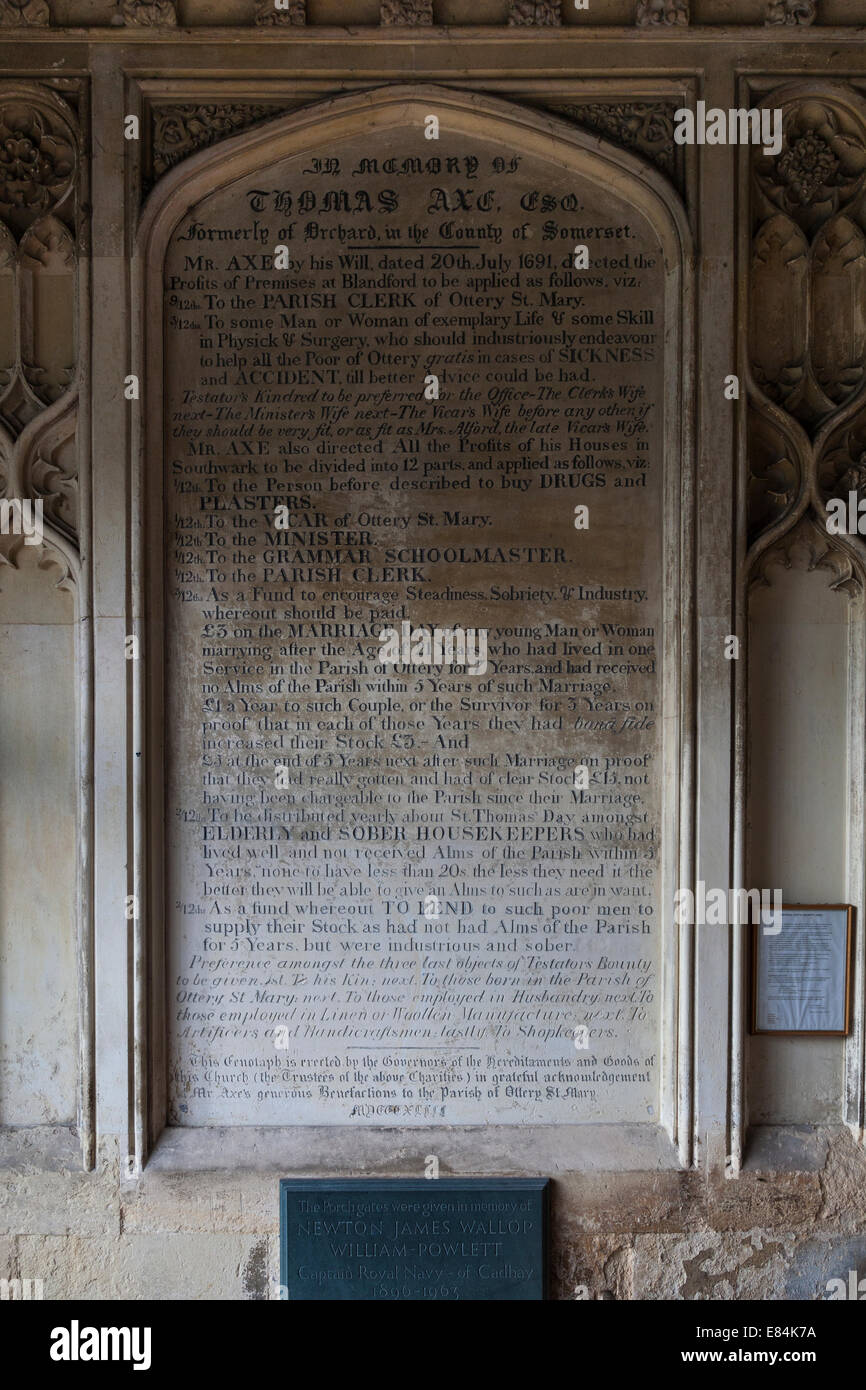 IN MEMORY OF
THOMAS AXE, ESQ.
Formerly of Orchard, in the County of Somerset.
MR. AXE by his Will, dated 20th. July 1691, directed the
Profits of Premises at Blandford to be applied as follows, viz:
9/12ds. To the PARISH CLERK of Ottery St. Mary.
3/12ds. To some Man or Woman of exemplary Life & some Skill
in Physick & Surgery, who should industriously endeavour
to help all the Poor of Ottery gratis in cases of SICKNESS
and ACCIDENT, till better advice could be had.
Testator's Kindred to be preferred for the Office-The Clerk's Wife
next-The Minister's Wife next-The Vicar's Wife before any other, if
they should be very fit, or as fit as Mrs. Alford, the late Vicar's Wife.
MR. AXE also directed All the Profits of his Houses in
Southwark to be divided into 12 parts, and applied as follows, viz:
1/12th. To the Person before described to buy DRUGS and
PLASTERS.
1/12th. To the VICAR of Ottery St. Mary.
1/12th To the MINISTER.
1/12th. To the GRAMMAR SCHOOLMASTER.
1/12th. To the PARISH CLERK.
/12ds. As a Fund to encourage Steadiness, Sobriety, & Industry,
whereout should be paid,
£3 on the MARRIAGE DAY of any young Man or Woman
marrying after the Age of 21 Years who had lived in one
Service in the Parish of Ottery for Years, and had received
no Alms of the Parish within 5 Years of such Marriage.
£1 a Year to such Couple, or the Survivor for 3 Years on
proof that in each of those Years they had bonâ fide
increased their Stock £3.- And
£5 at the end of 5 Years next after such Marriage on proof
that they had really gotten and had of clear Stock £15, not
having been chargeable to the Parish since their Marriage.
2/12ds. To be distributed yearly about St. Thomas' Day amongst
ELDERLY and SOBER HOUSEKEEPERS who had
lived well and not received Alms of the Parish within 5
Years, "none to have less than 20s. the less they need it the
better they will be able to give an Alms to such as are in want.
2/12ds. As a fund whereout TO LEND to such poor men to
supply their Stock as had not had Alms of the Parish
for 5 Years, but were industrious and sober.
Preference amongst the three last objects of Testators Bounty
to be given, 1st. To his Kin: next, To those born in the Parish of
Ottery St Mary: next, To those employed in Husbandry next, To
those employed in Linen or Woollen Manufacture: next, To
Artificers and Handicraftsmen: lastly, To Shopkeepers.
This Cenotaph is erected by the Governors of the Hereditaments and Goods of
this Church (the Trustees of the above Charities) in grateful acknowledgement
of Mr. Axe's generous Benefactions to the Parish of Ottery St. Mary.
The Porch gates were given in memory of
NEWTON JAMES WALLOP
WILLIAM-POWLETT
Captain Royal Navy - of Cadhay
1896-1963
alamy
alamy
alamy
Image ID: E84K7A
www.alamy.com